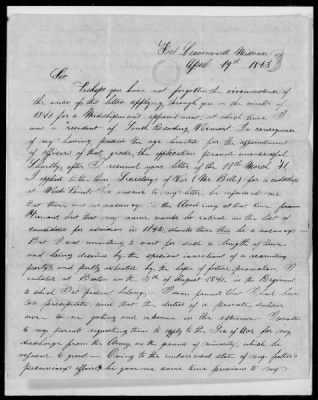 Fort Leavenworth Missouri
April 19th 1843
Sir
Perhaps you have not forgotten the circumstance of
the writer of this letter applying through you in the winter of
1841 for a Midshipman's appointment, at which time I
was a resident of South Reading, Vermont. In consequence
of my having passed the age limited for the appointment
of officers of that grade, the application proved unsuccessful
Shortly after I received your letter of the 11th March 41
I applied to the then Secretary of War (Mr. Bell) for a cadetship
at West Point. In answer to my letter he informed me
that there was no vacancy in the Academy at that time from
Vermont, but that my name would be entered on the list of
candidates for admission in 1842, should there then be a vacancy
But I was unwilling to wait for such a length of time
and being desirous by the specious inducement of a recruiting
party, and partly actuated by the hope of future promotion, I
enlisted at Boston on the 5th of August 1841, in the Regiment
to which I at present belong. I soon found that I had been
too precipitate, and that the duties of a private soldier
were to me galling and irksome in the extreme. I wrote
to my parent requesting them to apply to the Sec of War for my
discharge from the Army, on the ground of minority, which he
refused to grant. Owing to the embarrassed state of my father's
pecuniary affairs he gave me some time previous to my